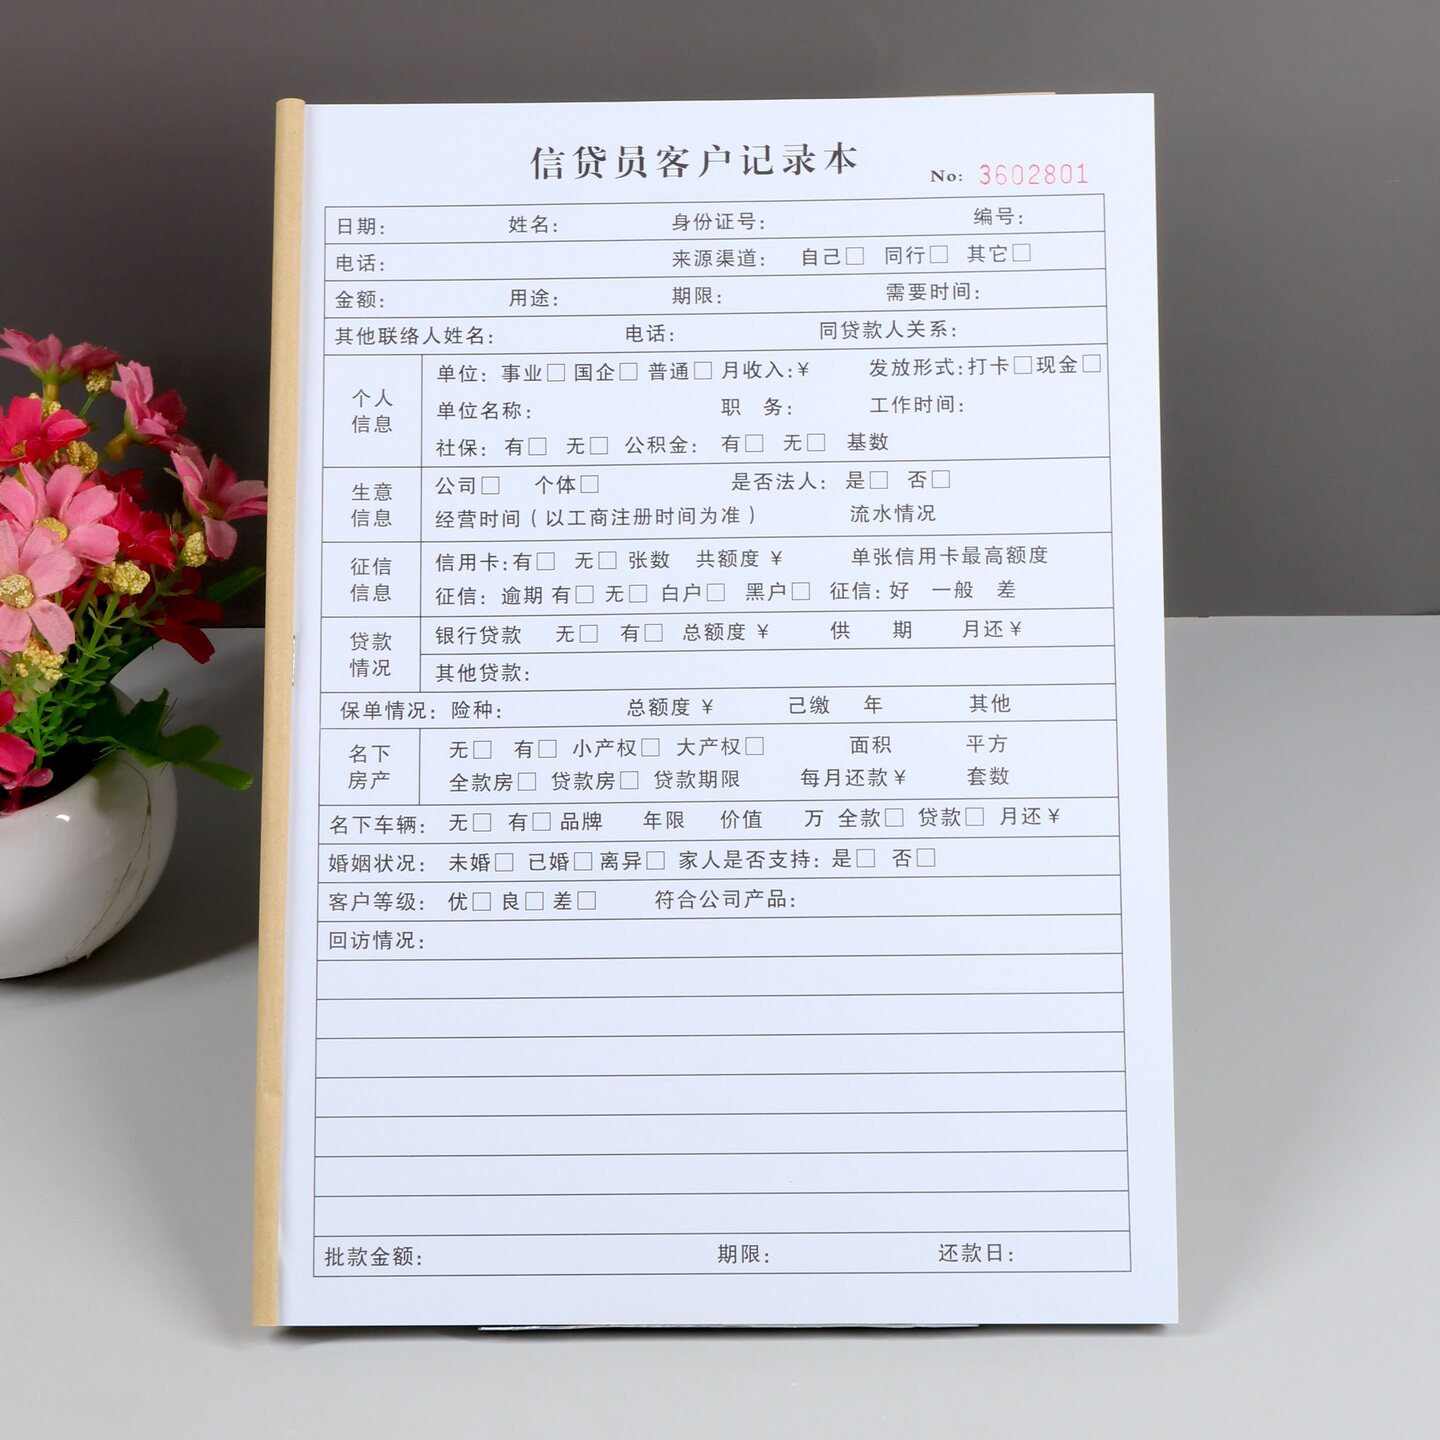 信贷员客户记录本
No: 3602801
日期: 姓名: 身份证号: 编号:
电话: 来源渠道: 自己□ 同行□ 其它□
金额: 用途: 期限: 需要时间:
其他联络人姓名: 电话: 同贷款人关系:
个人信息
单位: 事业□ 国企□ 普通□ 月收入:¥ 发放形式:打卡□现金□
单位名称: 职 务: 工作时间:
社保: 有□ 无□ 公积金: 有□ 无□ 基数
生意信息
公司□ 个体□ 是否法人: 是□ 否□
经营时间(以工商注册时间为准) 流水情况
征信信息
信用卡:有□ 无□ 张数 共额度 ¥ 单张信用卡最高额度
征信: 逾期 有□ 无□ 白户□ 黑户□ 征信: 好 一般 差
贷款情况
银行贷款 无□ 有□ 总额度 ¥ 供 期 月还¥
其他贷款:
保单情况: 险种: 总额度 ¥ 己缴 年 其他
名下房产
无□ 有□ 小产权□ 大产权□ 面积 平方
全款房□ 贷款房□ 贷款期限 每月还款¥ 套数
名下车辆: 无□ 有□ 品牌 年限 价值 万 全款□ 贷款□ 月还¥
婚姻状况: 未婚□ 已婚□ 离异□ 家人是否支持: 是□ 否□
客户等级: 优□ 良□ 差□ 符合公司产品:
回访情况:
批款金额: 期限: 还款日: